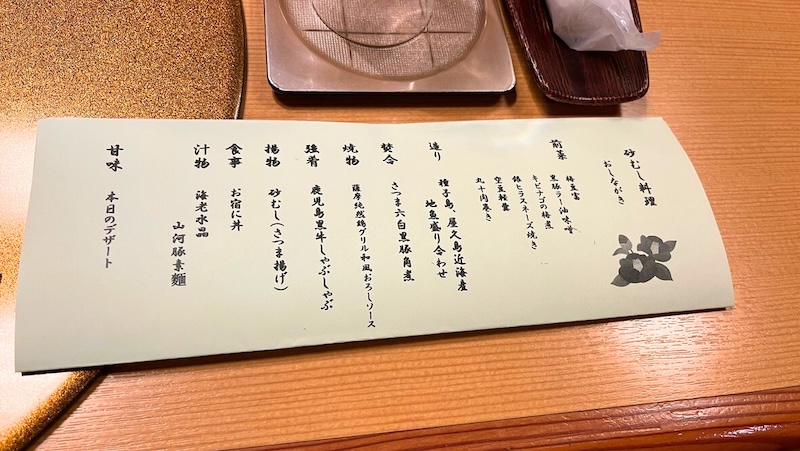 砂むし料理
おしながき
前菜
梅豆富
黒豚ラー油味噌
キビナゴの梅煮
銀ヒラスネーズ焼き
空豆軽羹
丸十肉巻き
造り
種子島、屋久島近海産
地魚盛り合わせ
焚合
さつま六白黒豚角煮
焼物
薩摩純然鶏グリル和風おろしソース
強肴
鹿児島黒牛しゃぶしゃぶ
揚物
砂むし(さつま揚げ)
食事
お宿に丼
汁物
海老水晶
山河豚素麺
甘味
本日のデザート